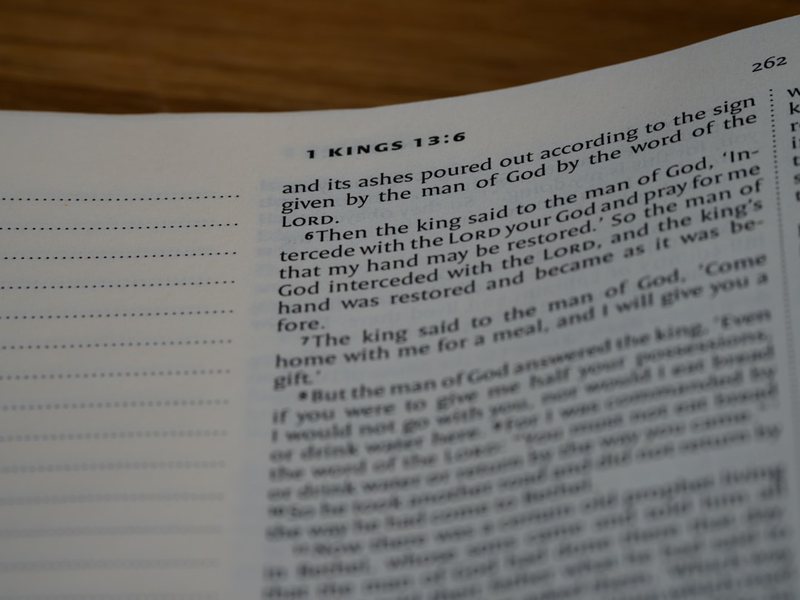 262
1 KINGS 13:6
and its ashes poured out according to the sign
given by the man of God by the word of the
LORD.
6Then the king said to the man of God, ‘In-
tercede with the LORD your God and pray for me
that my hand may be restored.’ So the man of
God interceded with the LORD, and the king’s
hand was restored and became as it was be-
fore.
7The king said to the man of God, ‘Come
home with me for a meal, and I will give you a
gift.’
8But the man of God answered the king, ‘Even
if you were to give me half your possessions,
I would not go with you, nor would I eat bread
or drink water here. 9For I was commanded by
the word of the LORD: “You must not eat bread
or drink water or return by the way you came.”’
10So he took another road and did not return by
the way he had come to Bethel.
11Now there was a certain old prophet living
in Bethel, whose sons came and told him all
that the man of God had done there that day.